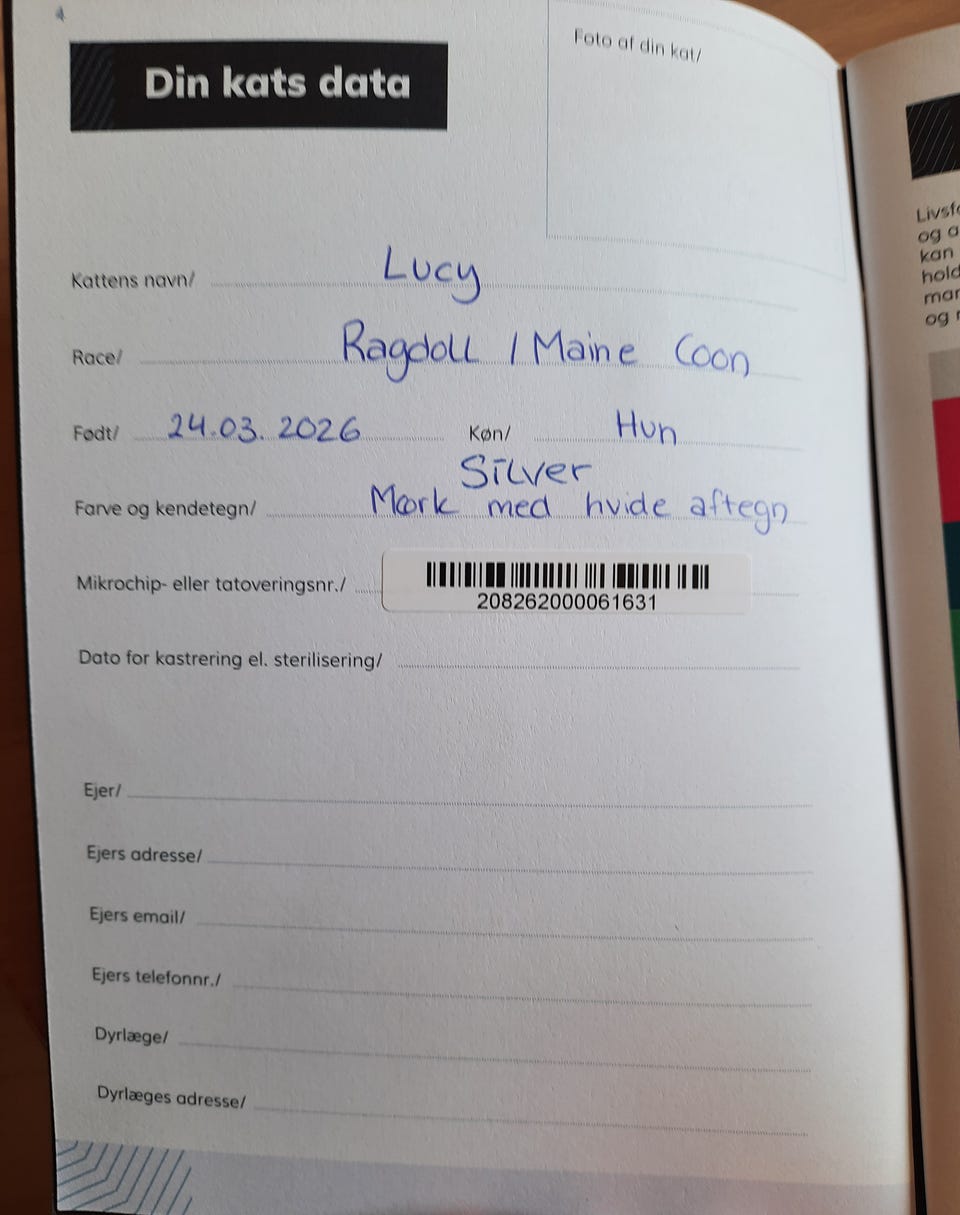 Din kats data
Foto af din kat/
Kattens navn/ Lucy
Race/ Ragdoll / Maine Coon
Født/ 24.03.2026 Køn/ Hun
Silver
Farve og kendetegn/ Mørk med hvide aftegn
Mikrochip- eller tatoveringsnr./ 208262000061631
Dato for kastrering el. sterilisering/
Ejer/
Ejers adresse/
Ejers email/
Ejers telefonnr./
Dyrlæge/
Dyrlæges adresse/
og
kan
og